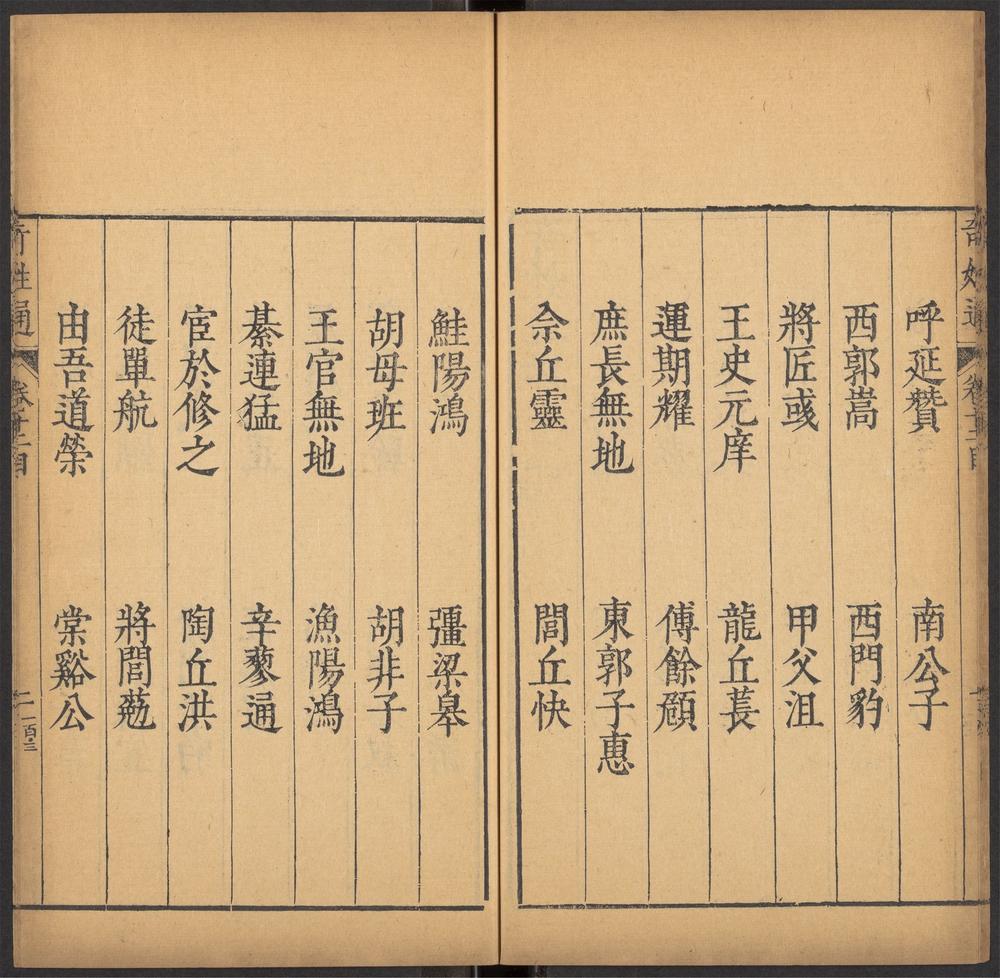 呼延贊 南公子
西郭嵩 西門豹
將匠彧 甲父沮
王史元庠 龍丘萇
運期耀 傅餘頠
庶長無地 東郭子惠
佘丘靈 閭丘快
鮭陽鴻 彊梁皋
胡母班 胡非子
王官無地 漁陽鴻
綦連猛 辛蓼通
宦於修之 陶丘洪
徒單航 將閭葂
由吾道榮 棠谿公
奇姓通